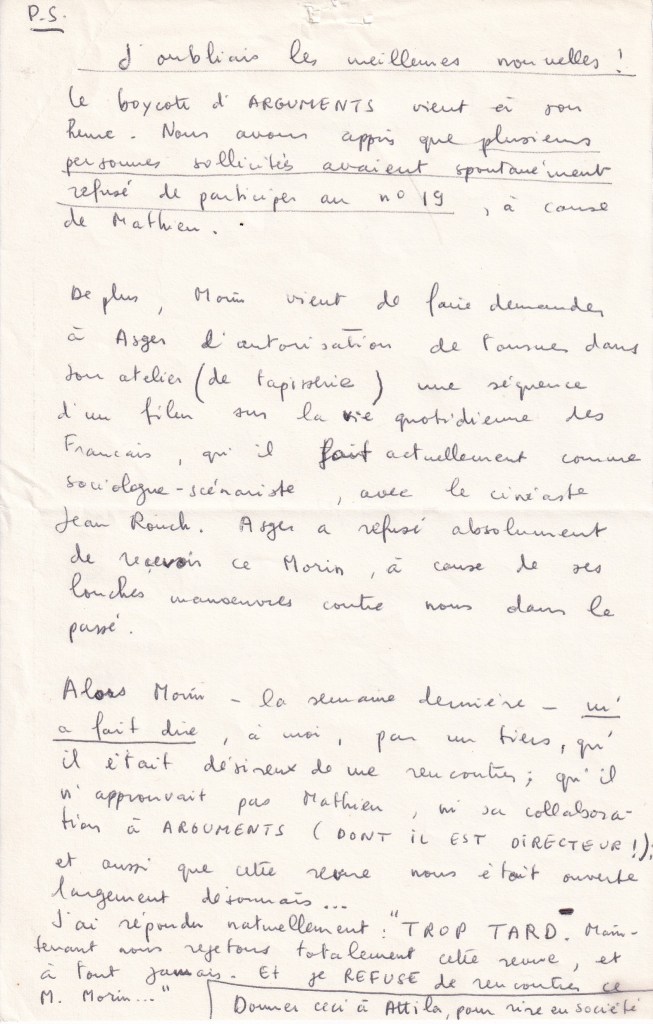 P.S.
J'oubliais les meilleures nouvelles !
Le boycott d'ARGUMENTS vient à son
heure. Nous avons appris que plusieurs
personnes sollicités avaient spontanément
refusé de participer au n° 19, à cause
de Mathieu.
De plus, Morin vient de faire demander
à Asger l'autorisation de tourner dans
son atelier (de tapisserie) une séquence
d'un film sur la vie quotidienne des
Francais, qu'il fait actuellement comme
sociologue-scénariste, avec le cinéaste
Jean Rouch. Asger a refusé absolument
de recevoir ce Morin, à cause de ses
louches manoeuvres contre nous dans le
passé.
Alors Morin - la semaine dernière - m'
a fait dire, à moi, par un tiers, qu'
il était désireux de me rencontrer ; qu'il
n'approuvait pas Mathieu, ni sa collabora-
tion à ARGUMENTS (DONT IL EST DIRECTEUR !) ;
et aussi que cette revue nous était ouverte
largement désormais...
J'ai répondu naturellement : "TROP TARD. Main-
tenant nous rejetons totalement cette revue, et
à tout jamais. Et je REFUSE de rencontrer ce
M. Morin..."
Donner ceci à Attila, pour rire en société